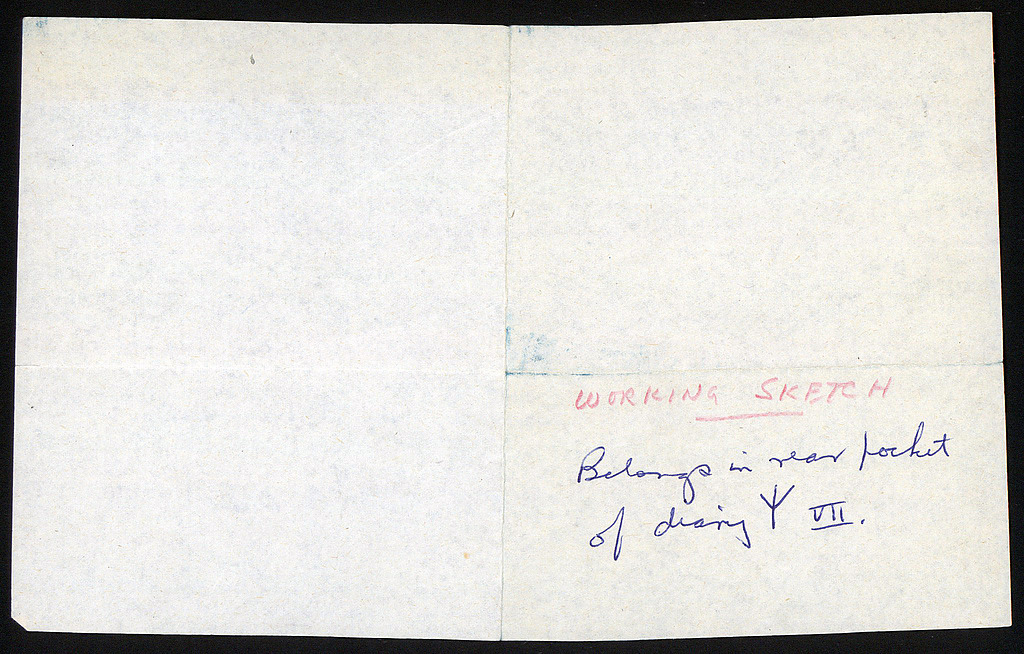 WORKING SKETCH
Belongs in rear pocket
of diary Ψ VII.